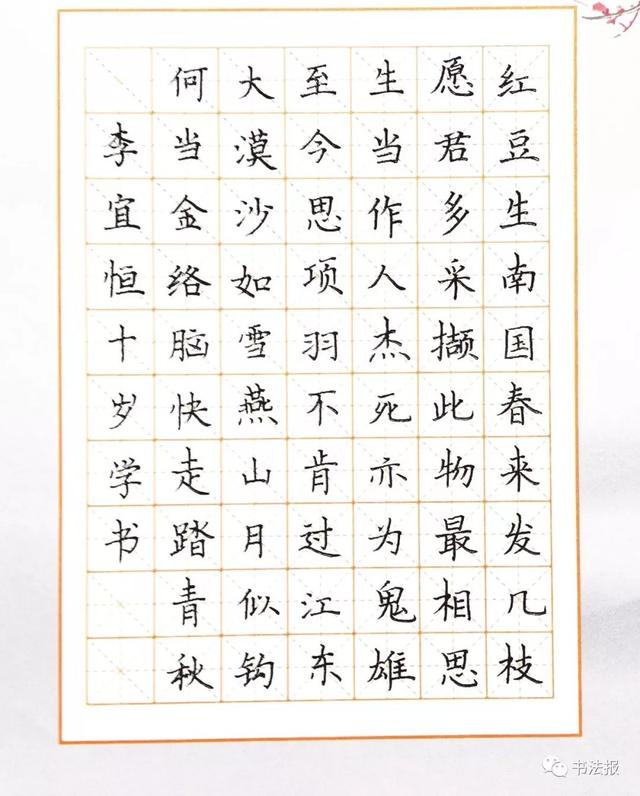 红豆生南国春来发几枝
愿君多采撷此物最相思
生当作人杰死亦为鬼雄
至今思项羽不肯过江东
大漠沙如雪燕山月似钩
何当金络脑快走踏青秋
李宜恒十岁学书
书法报